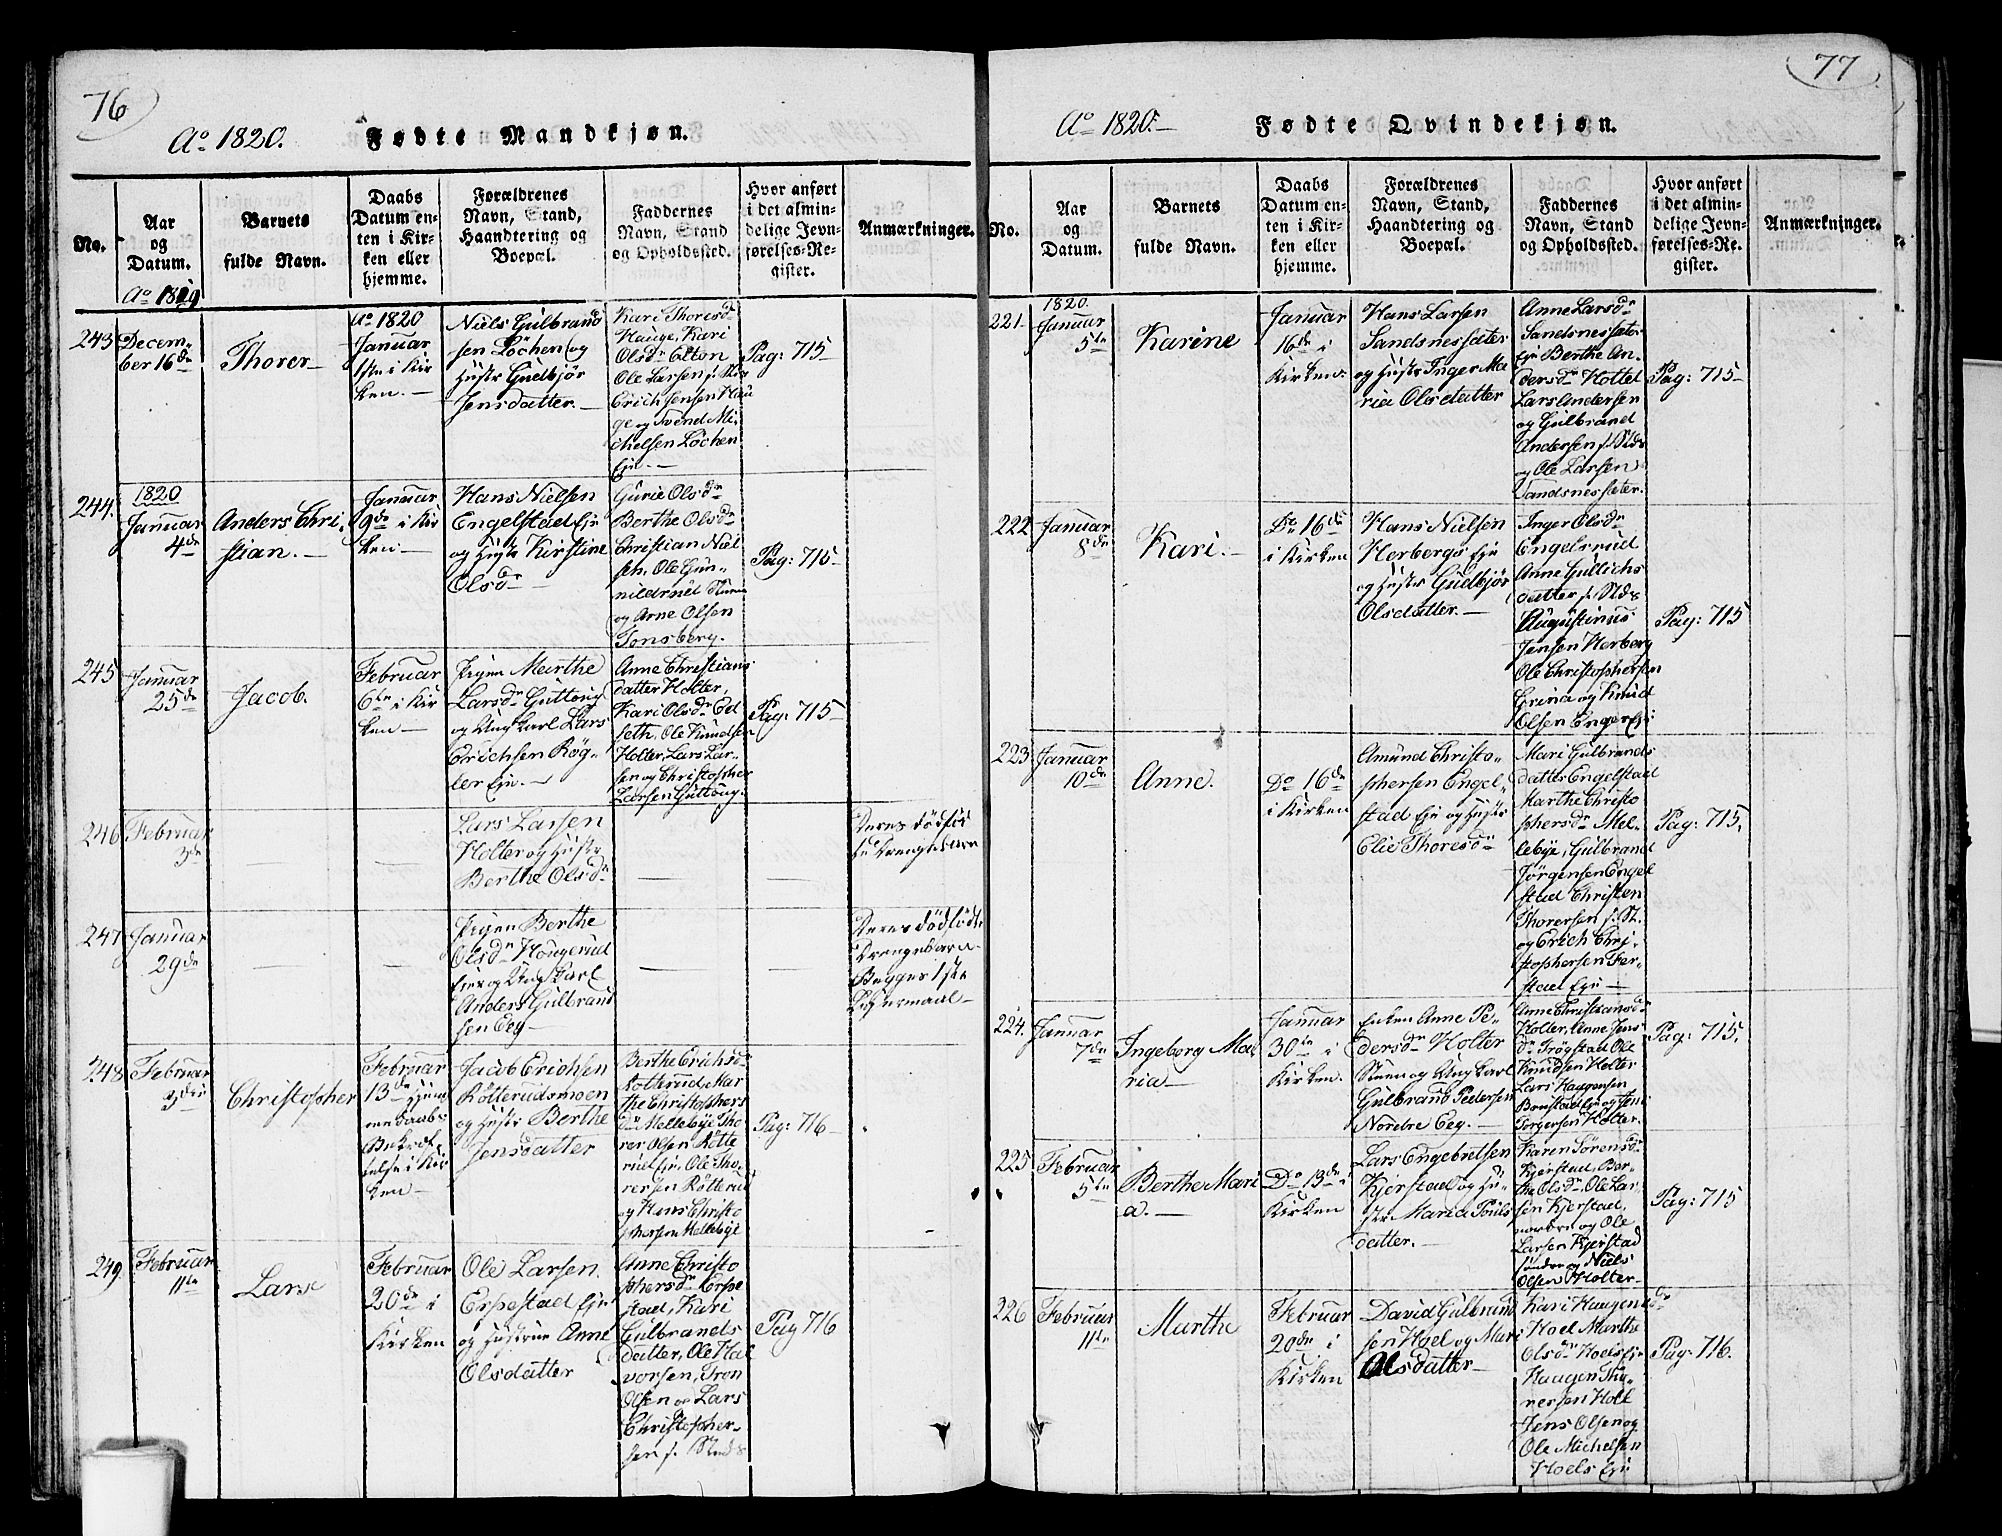 76
Aº 1820.
Fødte Mandkjøn.
No.
Aar
og
Datum.
Barnets
fulde Navn.
Daabs
Datum en-
ten i Kir-
ken eller
hjemme.
Forældrenes
Navn, Stand,
Haandtering og
Boepæl.
Faddernes
Navn, Stand
og Opholdssted.
Hvor anført
i det almin-
delige Jevn-
førelses-Re-
gister.
Anmærkninger.
Aº 1819
243
Decem-
ber 16de
Thorer
Aº 1820
Januar
1ste i Kir
ken.
Niels Gulbrand
sen Löchen og
Hustr Gudbjør
Jensdatter.
Kari Thoresdr
Hauge, Kari
Olsdr Elton
Ole Larsen
Erich Jensen Hau
ge og Svend Mi-
chelsen Löchen
Eje.
Pag: 715
244.
1820
Januar
4de
Anders Chri-
stian.
Januar
9de i Kir
ken
Hans Nielsen
Engelstad Eje
og Hustr Kirstine
Olsdr
Gurie Olsdr
Berthe Olsdr
Christian Niel
sen, Ole Gun-
og Arne Olsen
Tonsberg.
Pag: 715
245
Januar
25de
Jacob.
Februar
6te i Kir
ken
Pigen Marthe
Larsdr Guttoug
og Ung Karl Lars
Erichsen Røg-
ler Eje.
Anne Christians
datter Holter,
Kari Olsdr Ed
seth, Ole Knudsen
Holter, Lars Lar-
sen og Christopher
Larsen Guttoug.
Pag: 715
246
Februar
3de
Lars Larsen
Holter og Hustr
Berthe Olsdr
Deres dødfød
te Drengebarn
247
Januar
29de
Pigen Berthe
Olsdr Hougerud
Eje og Ung Karl
Anders Gulbrand
sen Eeg
Deres dødfødte
Drengebarn
Begges 1ste
Leiermaal
248
Februar
3die
Christopher
Februar
13de Hjem
me Daabs
Bekræf
telse i Kir
ken
Jacob Erichsen
Rotterudsmoen
og Hustr Berthe
Jensdatter
Berthe Erichsdr
Rotterud Mar
the Christophers
dr Mellebye Tho
rer Olsen Rotte
rud Eje, Ole Tho-
rersen Rotterud
og Hans Christo
phersen Mellebye
Pag: 716
249.
Februar
11te
Lars
Februar
20de i
Kirken
Ole Larsen
Erpestad Eje
og Hustrue Anne
Olsdatter
Anne Christo
phersdr Erpe
stad, Kari
Gulbrands
datter, Ole Hal
vorsen, Tron
Olsen og Lars
Christopher-
sen
Pag 716
77
Aº 1820.
Fødte Qvindekjøn.
No.
Aar
og
Datum.
Barnets
fulde Navn.
Daabs
Datum en-
ten i Kir-
ken eller
hjemme.
Forældrenes
Navn, Stand,
Haandtering og
Boepæl.
Faddernes
Navn, Stand
og Opholdssted.
Hvor anført
i det almin-
delige Jevn-
førelses-Re-
gister.
Anmærkninger.
221.
1820.
Januar
5te
Karine
Januar
16de i
Kirken.
Hans Larsen
Sandsnessæter
og Hustr Inger Ma-
ria Olsdatter
Anne Larsdr
Sandsnessæter
Eje Berthe An-
dersdr Hottel
Lars Andersen
og Gulbrand
Andersen
og Ole Larsen
Sandsnessæter.
Pag: 715
222
Januar
8de
Kari.
Do 16de
i Kirken
Hans Nielsen
Herbergs Eje
og Hustr Gudbjør
Olsdatter.
Inger Olsdr
Engelsrud
Anne Gullichs
datter
Augustinus
Jensen Herberg
Ole Christophersen
Grina og Knud
Olsen Enger Eje
Pag: 715
223
Januar
10de
Anne.
Do 16de
i Kirken
Amund Christo-
phersen Engel-
stad Eje og Hustr
Elie Thoresdr
Mari Gulbrands
datter Engelstad
Marthe Christo
phersdr Mel-
lebye, Gulbrand
Jørgensen Engel
stad Christen
Thorersen
og Erich Chri-
stophersen Fer-
stad Eje
Pag: 715,
224.
Januar
7de
Ingeborg Ma-
ria
Januar
30te i
Kirken.
Enken Anne Pe-
dersdr Holter
Stuen og Ung Karl
Gulbrand Pedersen
Nordre Eeg.
Anne Christiansdr
Holter, Anne Jens
dr Trøgstad Ole
Knudsen Holter
Lars Haagensen
Bonstad Eje og Jens
Torgersen Holter.
Pag: 715,
225
Februar
5te
Berthe Mari
a.
Do 13de i
Kirken
Lars Engebretsen
Kjerstad og Hu-
str Maria Pouls
datter.
Karen Sørensdr
Kjerstad, Ber-
the Olsdr Ole Lar
sen Kjerstad,
nordre og Ole
Larsen Kjerstad
søndre og Niels
Olsen Holter
Pag: 715
226
Februar
11te
Marthe
Februar
20de i
Kirken
David Gulbrand
sen Hoel og Mari
Olsdatter
Kari Haagensdr
Hoel Marthe
Olsdr Hoels Eje
Haagen Tho-
rersen Hoel
Jens Olsen og
Ole Michelsen
Hoels Eje
Pag: 716.